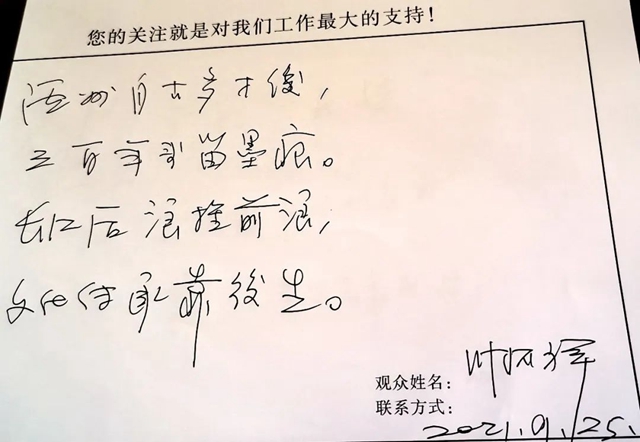 您的关注就是对我们工作最大的支持!
自古多才俊,
三百年 留墨痕。
长江后浪推前浪,
文化传承靠後生。
观众姓名:
联系方式:
2021.9.25.